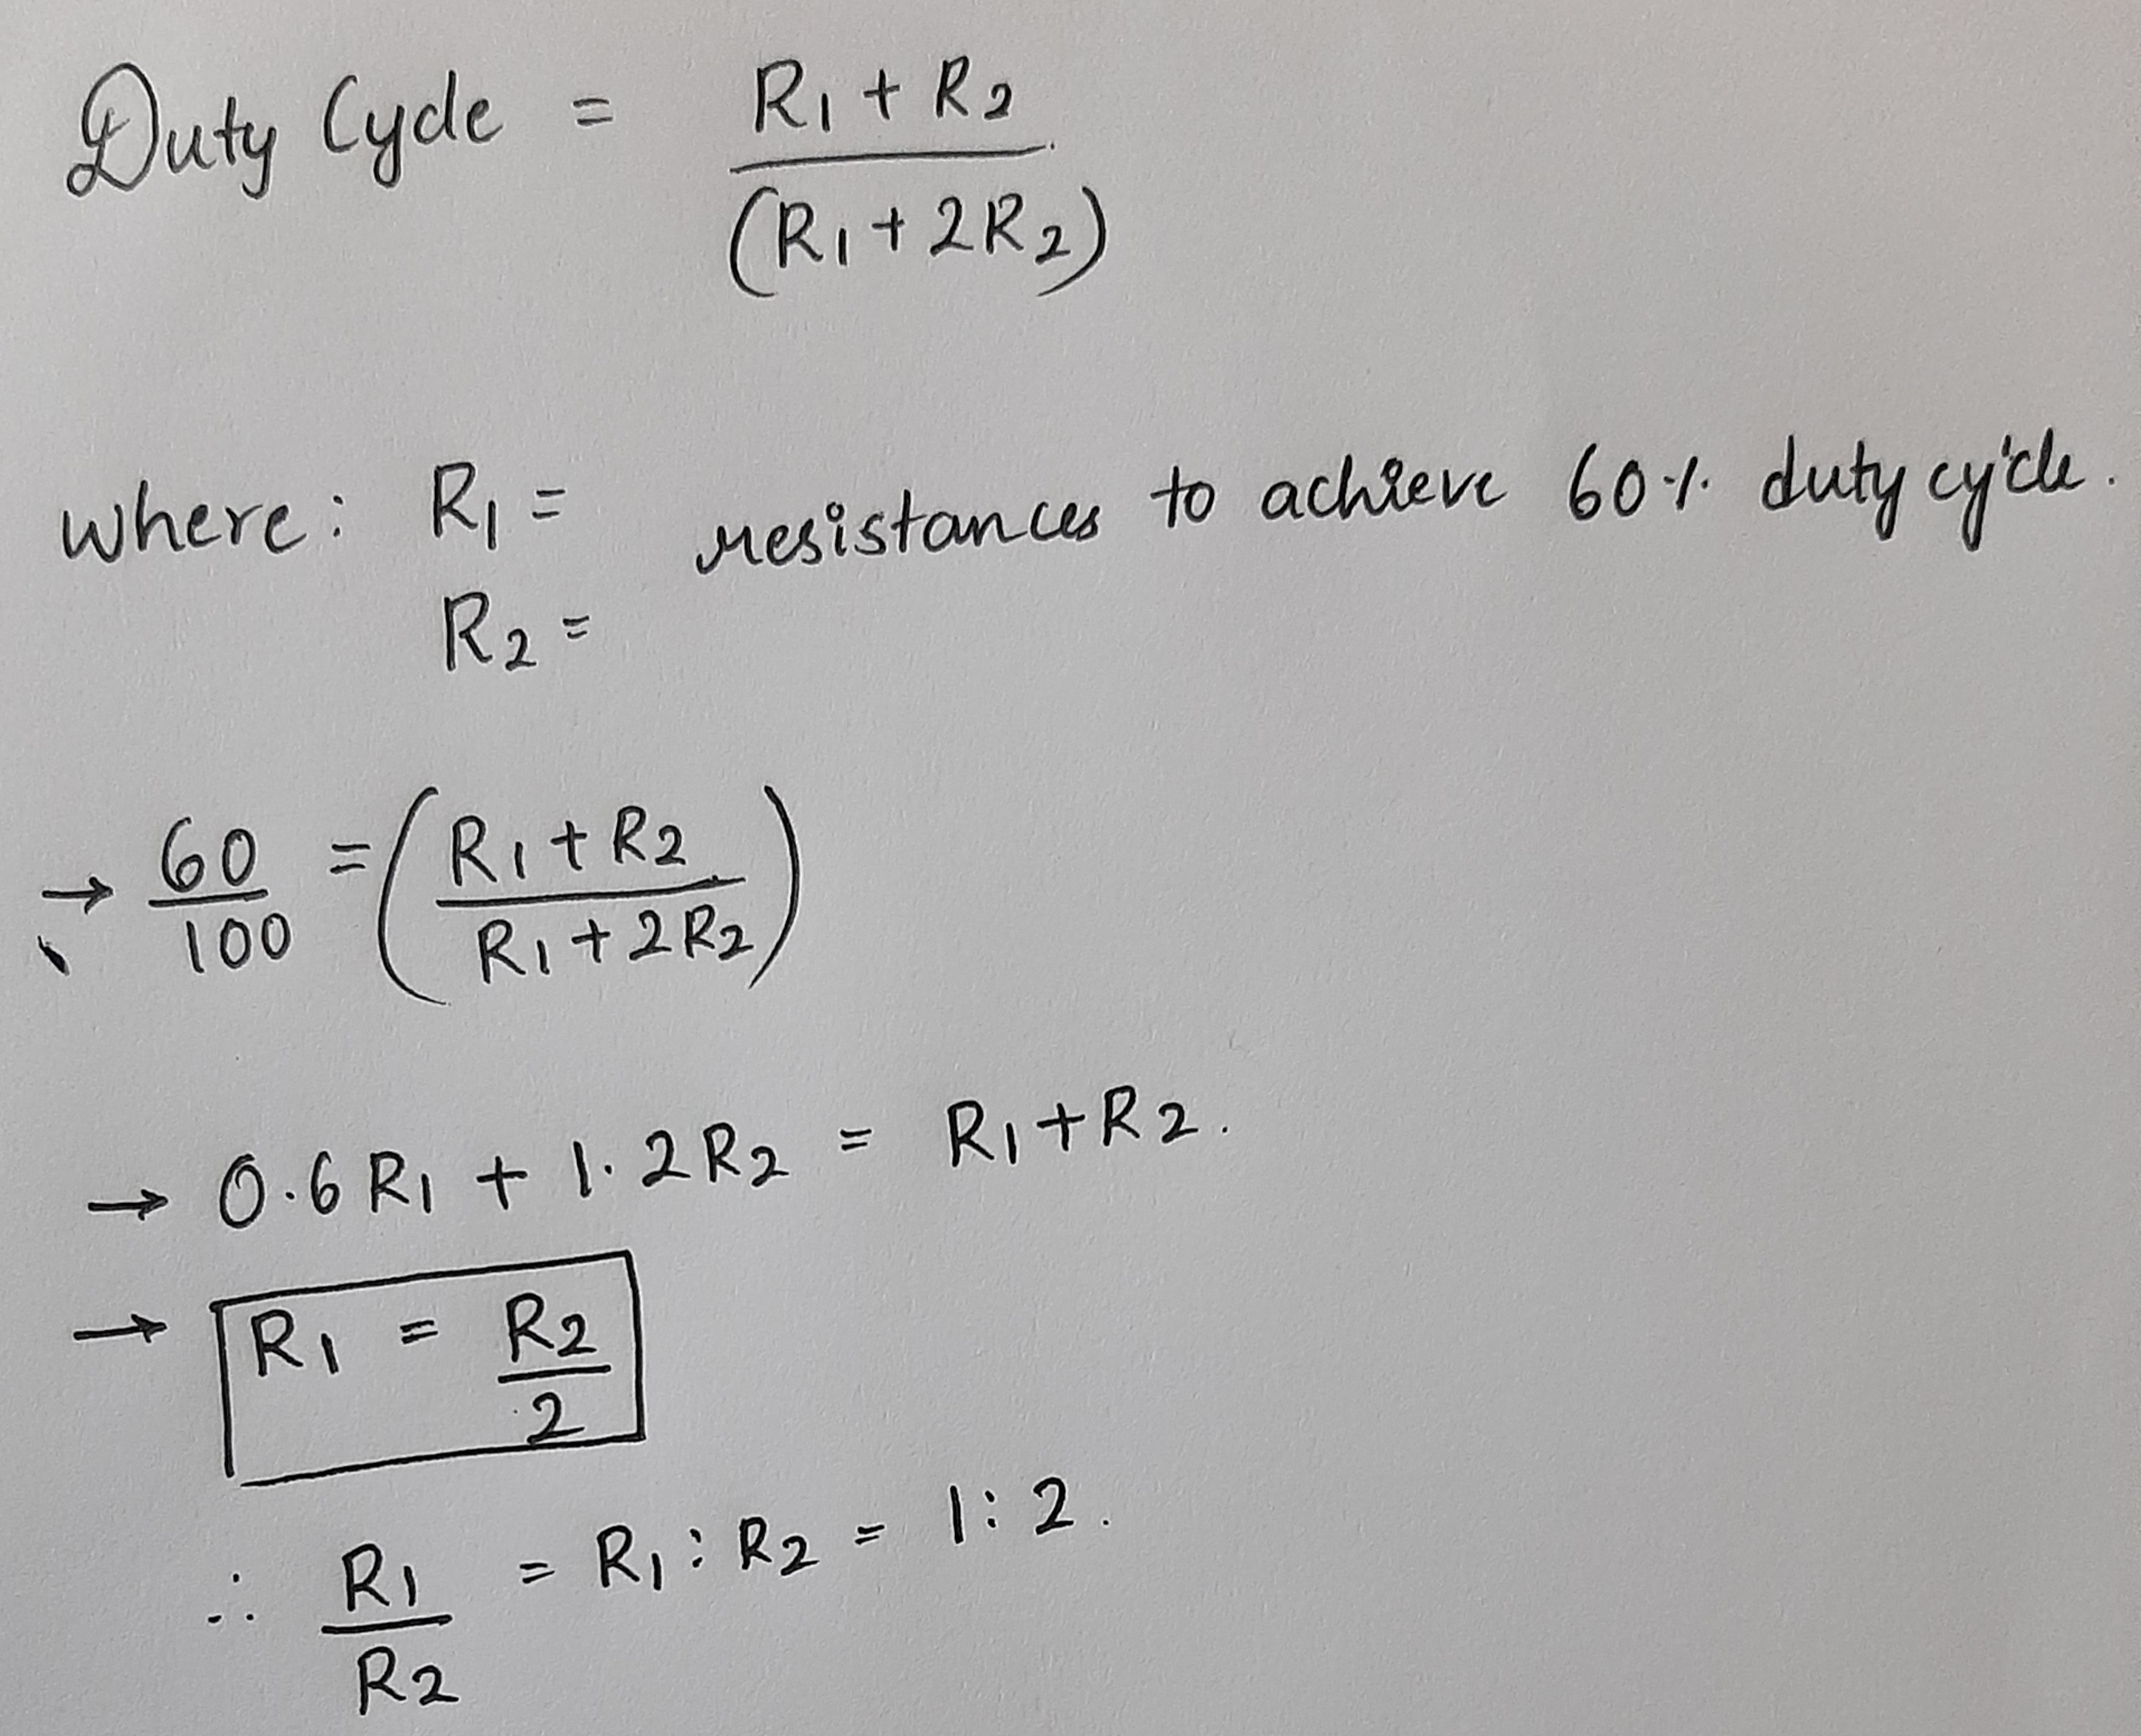 Duty Cycle = R1 + R2 / (R1 + 2R2)
where: R1 = resistances to achieve 60% duty cycle.
R2 =
→ 60/100 = (R1 + R2 / R1 + 2R2)
→ 0.6R1 + 1.2R2 = R1 + R2.
→ R1 = R2/2
∴ R1/R2 = R1 : R2 = 1 : 2.